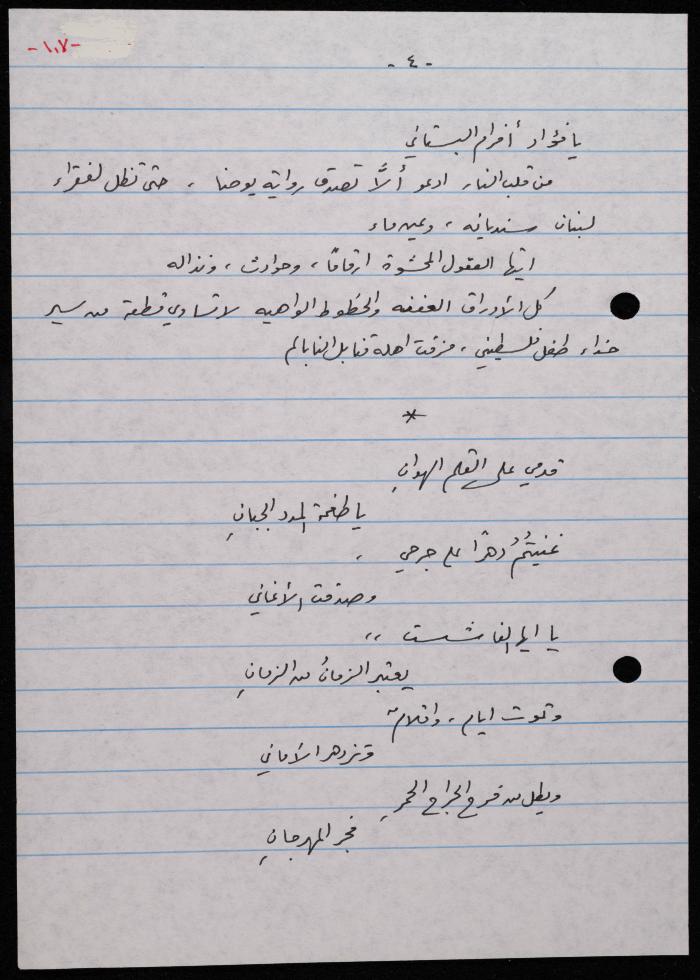 -١٠٧-
- ٤ -
يا فؤاد أفرام البستاني
من قلب النار ادعو ألاَّ تصدق رواية يوحنا ، حتى تظل لفقراء
لبنان سنديانه ، وعين ماء
ايتها العقول المحشوة ارقامًا ، وحوادث ، ونذاله
كل الأوراق العفنه والخطوط الواهيه لا تساوي قطعة من سير
حذاء طفل فلسطيني ، مزقت اهله قنابل النابالم
*
قدمي على القلم الهوانِ
يا طغمة المدد الجبانِ
غنيتُمُ دهرًا على جرحي ،
وصدقت الأغاني
يا ايها الفاشست ،،
يعتبر الزمانُ من الزمانِ
وتموت ايام ، واقلامٌ
وتزدهر الأماني
ويطل من فرح الجراح الحمرِ
فجر المهرجانِ